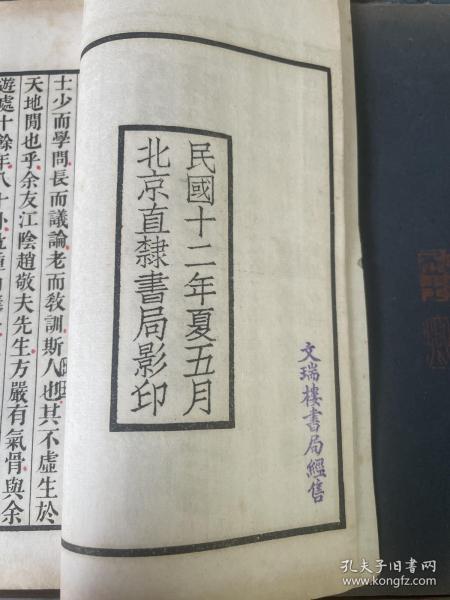 民國十二年夏五月
北京直隸書局影印
文瑞樓書局經售
士少而學問長而議論老而敎訓斯人也其不虛生於
天地閒也乎余友江陰趙敬夫先生方嚴有氣骨與余
遊處十餘年八十
孔夫子旧书网
www.kongfz.com